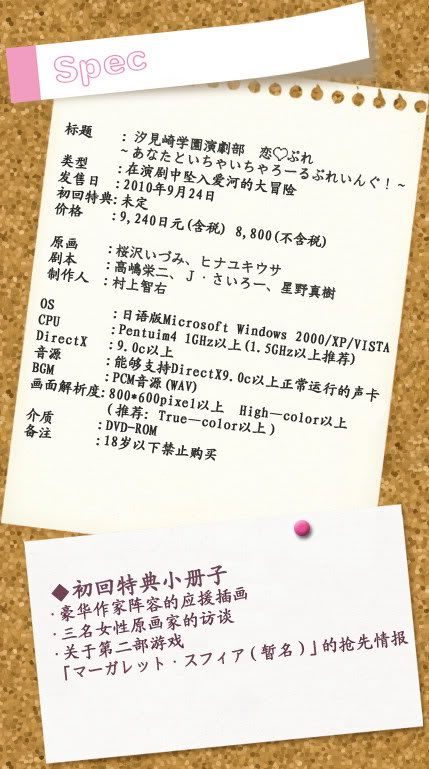 Spec
标题 : 汐見崎学園演劇部 恋♡ぷれ
～あなたといちゃいちゃろーるぷれいんぐ！～
类型 : 在演剧中坠入爱河的大冒险
发售日 : 2010年9月24日
初回特典: 未定
价格 : 9,240日元(含税) 8,800(不含税)
原画 : 桜沢いづみ、ヒナユキウサ
剧本 : 高嶋栄二、J・さいろー、星野真樹
制作人 : 村上智右
OS : 日语版Microsoft Windows 2000/XP/VISTA
CPU : Pentuim4 1GHz以上(1.5GHz以上推荐)
DirectX : 9.0c以上
音源 : 能够支持DirectX9.0c以上正常运行的声卡
BGM : PCM音源(WAV)
画面解析度: 800*600pixel以上 High—color以上
(推荐: True—color以上)
介质 : DVD-ROM
备注 : 18岁以下禁止购买
◆初回特典小册子
·豪华作家阵容的应援插画
·三名女性原画家的访谈
·关于第二部游戏
「マーガレット・スフィア(暂名)」的抢先情报